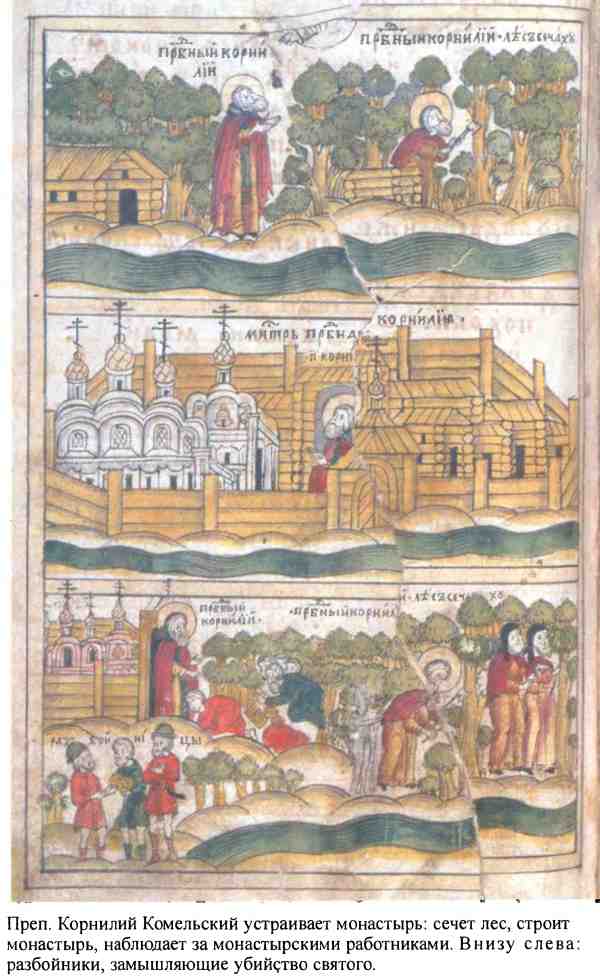 прⷣбный корни
лїй
прⷣбный корнилїй · лѣсъ сечахъ
корнилїѧ ·
прⷣбный
корнилїй ·
· прⷣбный корнил
й · лѣсъ сеча хо
раз бой ни цы
Преп. Корнилий Комельский устраивает монастырь: сечет лес, строит
монастырь, наблюдает за монастырскими работниками. Внизу слева:
разбойники, замышляющие убийство святого.